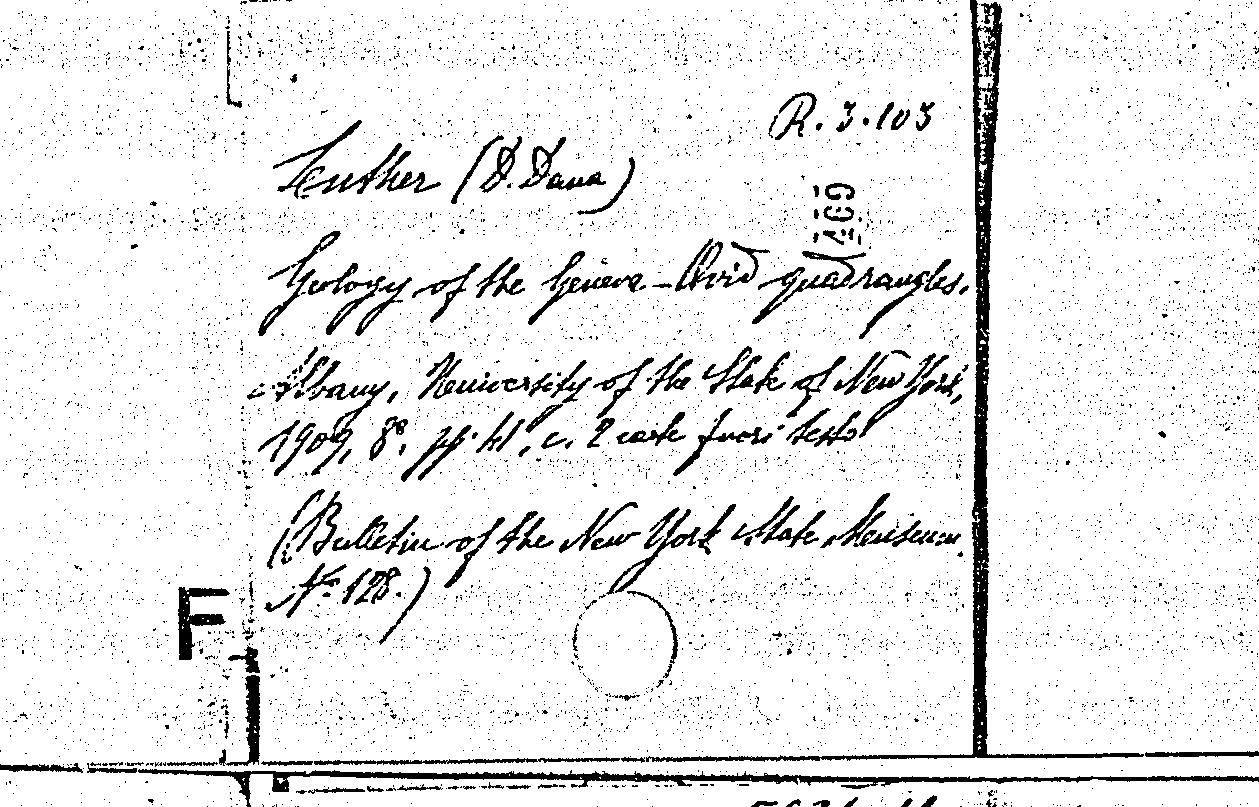 R. 3. 103
Luther (D. Dana)
Geology of the Geneva-Ovid quadrangles.
Albany, University of the State of New York,
1909, 8°, pp. 41, c. 2 carte fuori testo
(Bulletin of the New York State Museum.
N° 128.)
F